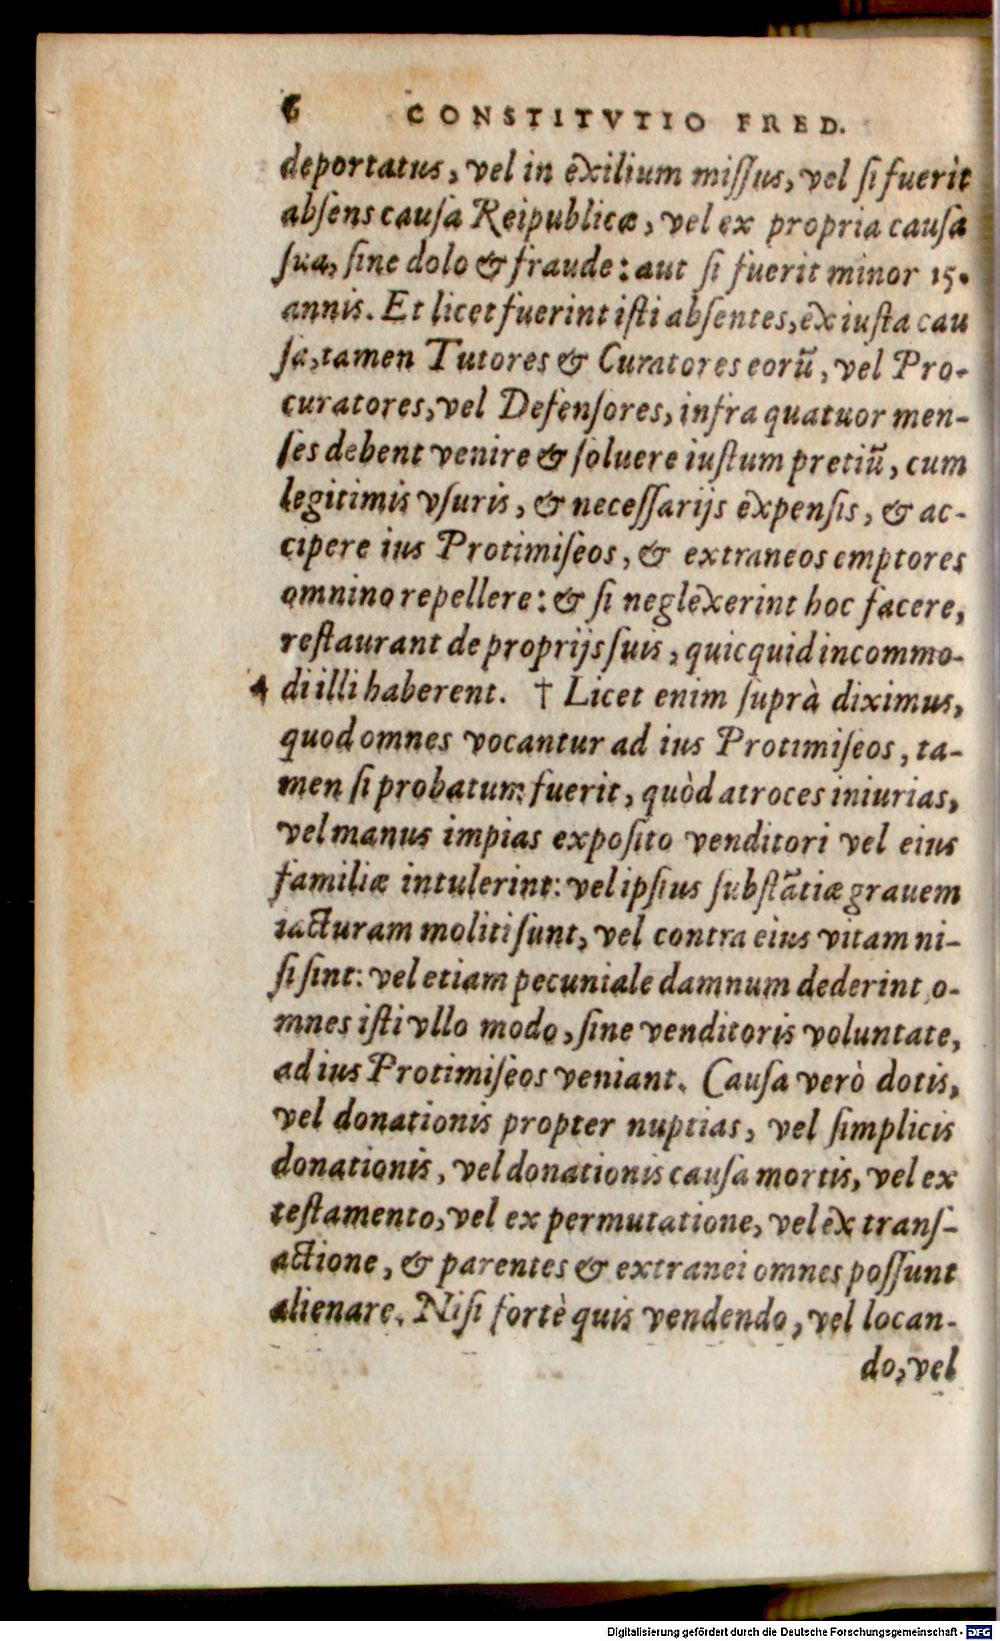 6 CONSTITVTIO FRED.
deportatus, vel in exilium missus, vel si fuerit
absens causa Reipublicæ, vel ex propria causa
sua, sine dolo & fraude: aut si fuerit minor 15.
annis. Et licet fuerint isti absentes, ex iusta cau
sa, tamen Tutores & Curatores eorũ, vel Pro-
curatores, vel Defensores, infra quatuor men-
ses debent venire & soluere iustum pretiũ, cum
legitimis vsuris, & necessarijs expensis, & ac-
cipere ius Protimiseos, & extraneos emptores
omnino repellere: & si neglexerint hoc facere,
restaurant de proprijs suis, quicquid incommo-
4 di illi haberent. † Licet enim suprà diximus,
quod omnes vocantur ad ius Protimiseos, ta-
men si probatum fuerit, quòd atroces iniurias,
vel manus impias exposito venditori vel eius
familiæ intulerint: vel ipsius substãtiæ grauem
iacturam moliti sunt, vel contra eius vitam ni-
si sint: vel etiam pecuniale damnum dederint, o-
mnes isti vllo modo, sine venditoris voluntate,
ad ius Protimiseos veniant. Causa verò dotis,
vel donationis propter nuptias, vel simplicis
donationis, vel donationis causa mortis, vel ex
testamento, vel ex permutatione, vel ex trans-
actione, & parentes & extranei omnes possunt
alienare. Nisi fortè quis vendendo, vel locan-
do, vel
Digitalisierung gefördert durch die Deutsche Forschungsgemeinschaft - DFG